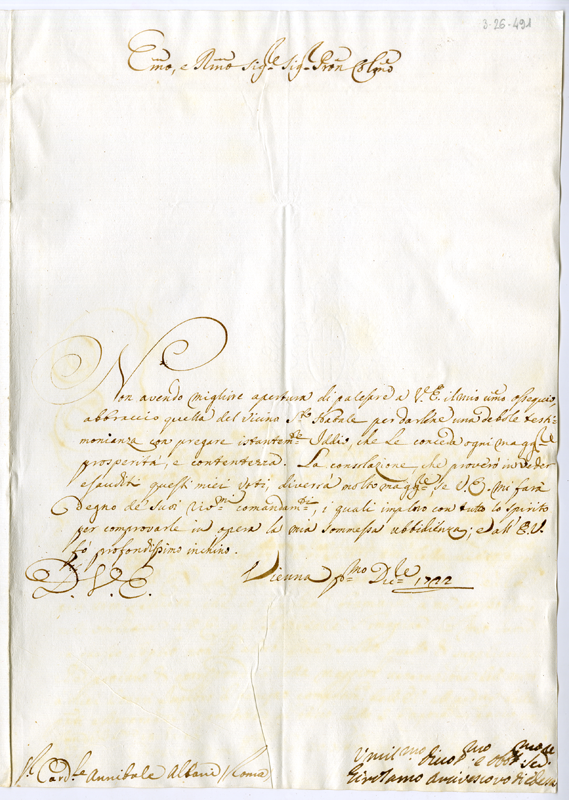 3-26-491
Emo, e Rmo Sigre Sigre Pron Colmo
Non avendo migliore apertura di palesare a V. E. il mio umo ossequio,
abbraccio quella del vicino Sto Natale per darlene una debole testi-
monianza con pregare istantemte Iddio, che Le conceda ogni maggre
prosperità, e contentezza. La consolazione, che proverò in veder
esauditi questi miei voti, diverrà molto maggre, se V. E. mi farà
degno de' suoi rivmi comandamti, i quali imploro con tutto lo spirito
per comprovarle in opera la mia sommessa ubbidienza; e all' E. V.
fò profondissimo inchino.
D. V. E.
Vienna pmo Dicre 1722
Sr Cardle Annibale Albani Roma
Umilmo Divmo e Obbmo Serre
Girolamo Arcivescovo di Edessa